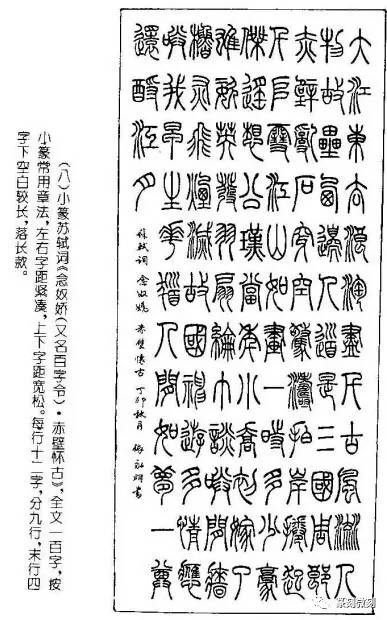 大江東去浪淘盡千古風流人
物故壘西邊人道是三國周郎
赤壁亂石穿空驚濤拍岸捲起
千堆雪江山如畫一時多少豪
傑遙想公瑾當年小喬初嫁了
雄姿英發羽扇綸巾談笑間檣
櫓灰飛煙滅故國神遊多情應
笑我早生華髮人間如夢一尊
還酹江月
蘇軾词 念奴嬌 赤壁懷古 丁卯秋月
（八）小篆苏轼词《念奴娇（又名百字令）·赤壁怀古》，全文一百字，按
小篆常用章法，左右字距紧凑，上下字距宽松。每行十二字，分九行，末行四
字下空白较长，落长款。
篆刻微刻